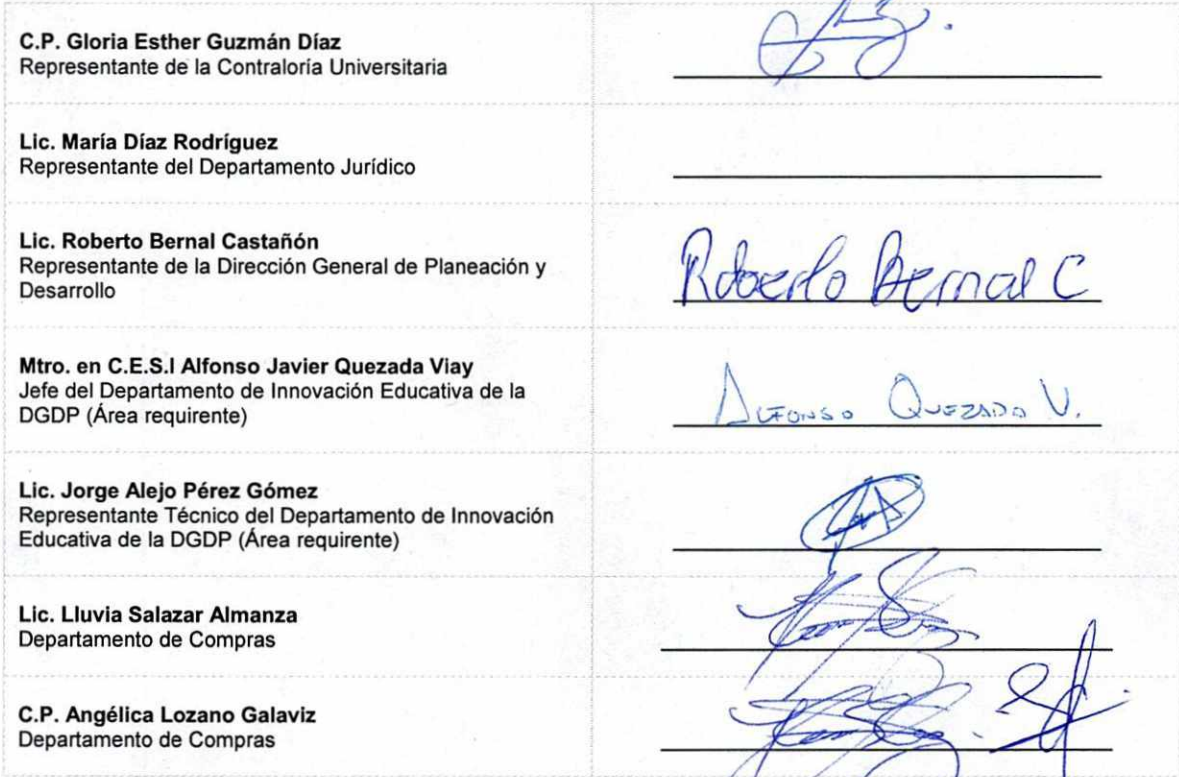 C.P. Gloria Esther Guzmán Díaz
Representante de la Contraloría Universitaria
Lic. María Díaz Rodríguez
Representante del Departamento Jurídico
Lic. Roberto Bernal Castañón
Representante de la Dirección General de Planeación y
Desarrollo
Roberto Bernal C
Mtro. en C.E.S.I Alfonso Javier Quezada Viay
Jefe del Departamento de Innovación Educativa de la
DGDP (Área requirente)
Alfonso Quezada V.
Lic. Jorge Alejo Pérez Gómez
Representante Técnico del Departamento de Innovación
Educativa de la DGDP (Área requirente)
Lic. Lluvia Salazar Almanza
Departamento de Compras
C.P. Angélica Lozano Galaviz
Departamento de Compras